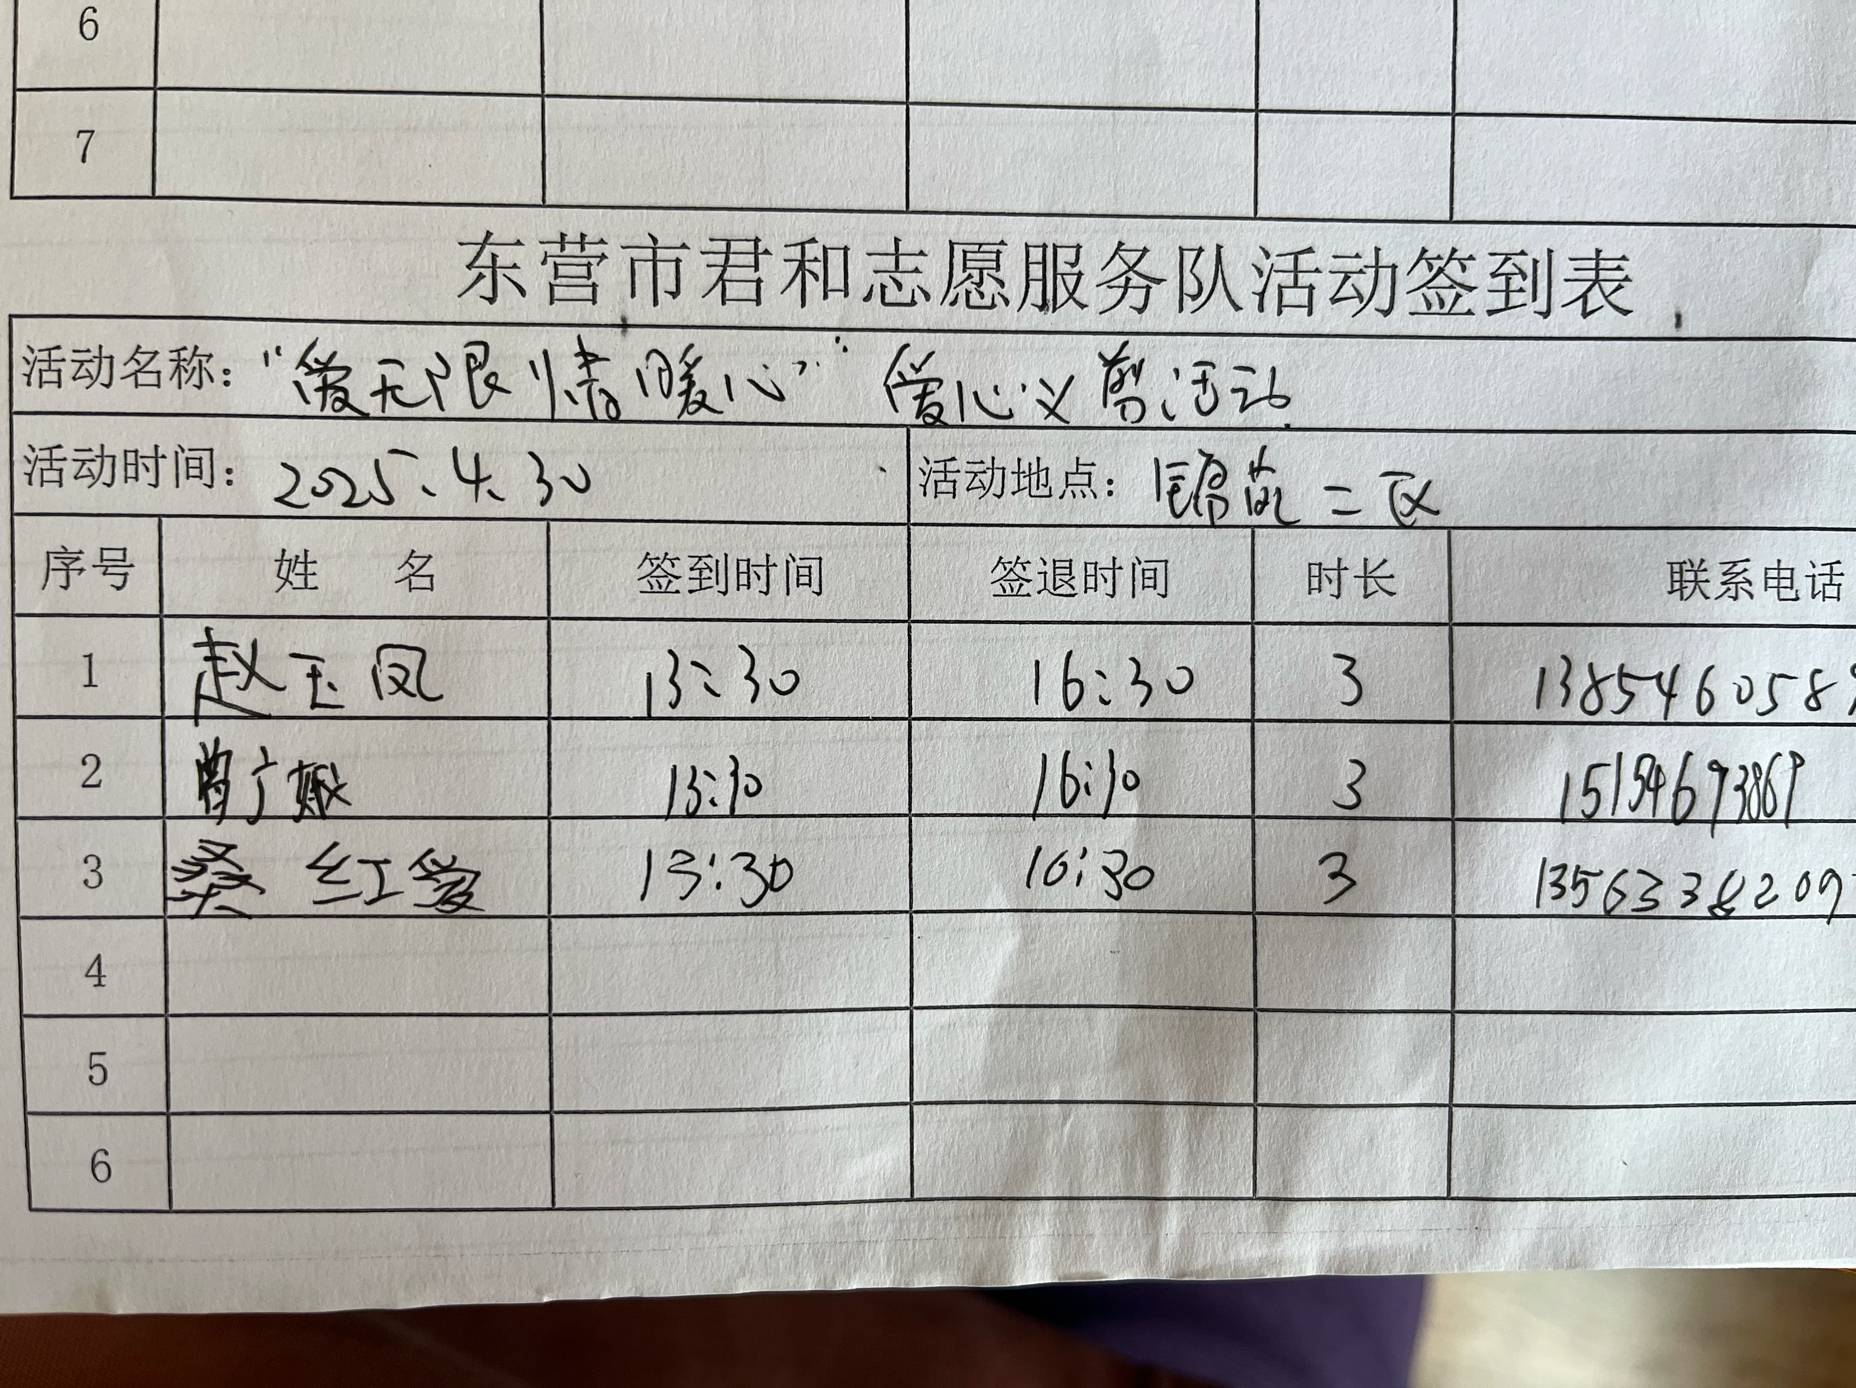 6
7
东营市君和志愿服务队活动签到表
活动名称：“爱无限情暖心”爱心义剪活动
活动时间：2025、4、30 活动地点：锦苑二区
序号 姓 名 签到时间 签退时间 时长 联系电话
1 赵玉凤 13:30 16:30 3 138546058
2 13:30 16:30 3 15154693869
3 桑红爱 13:30 16:30 3 1356338209
4
5
6